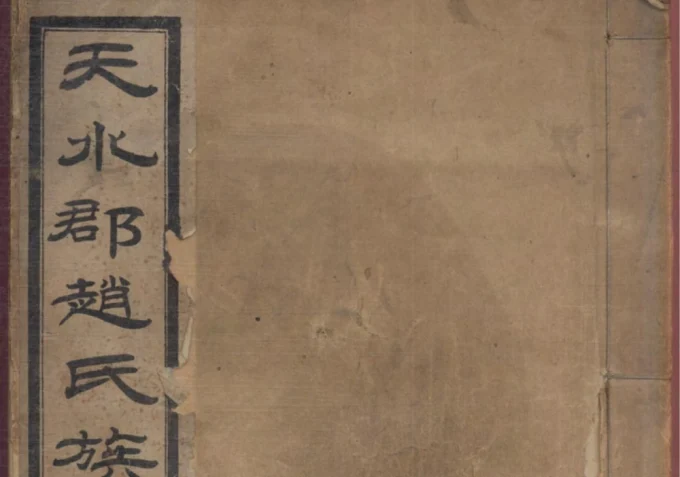 天水郡趙氏族